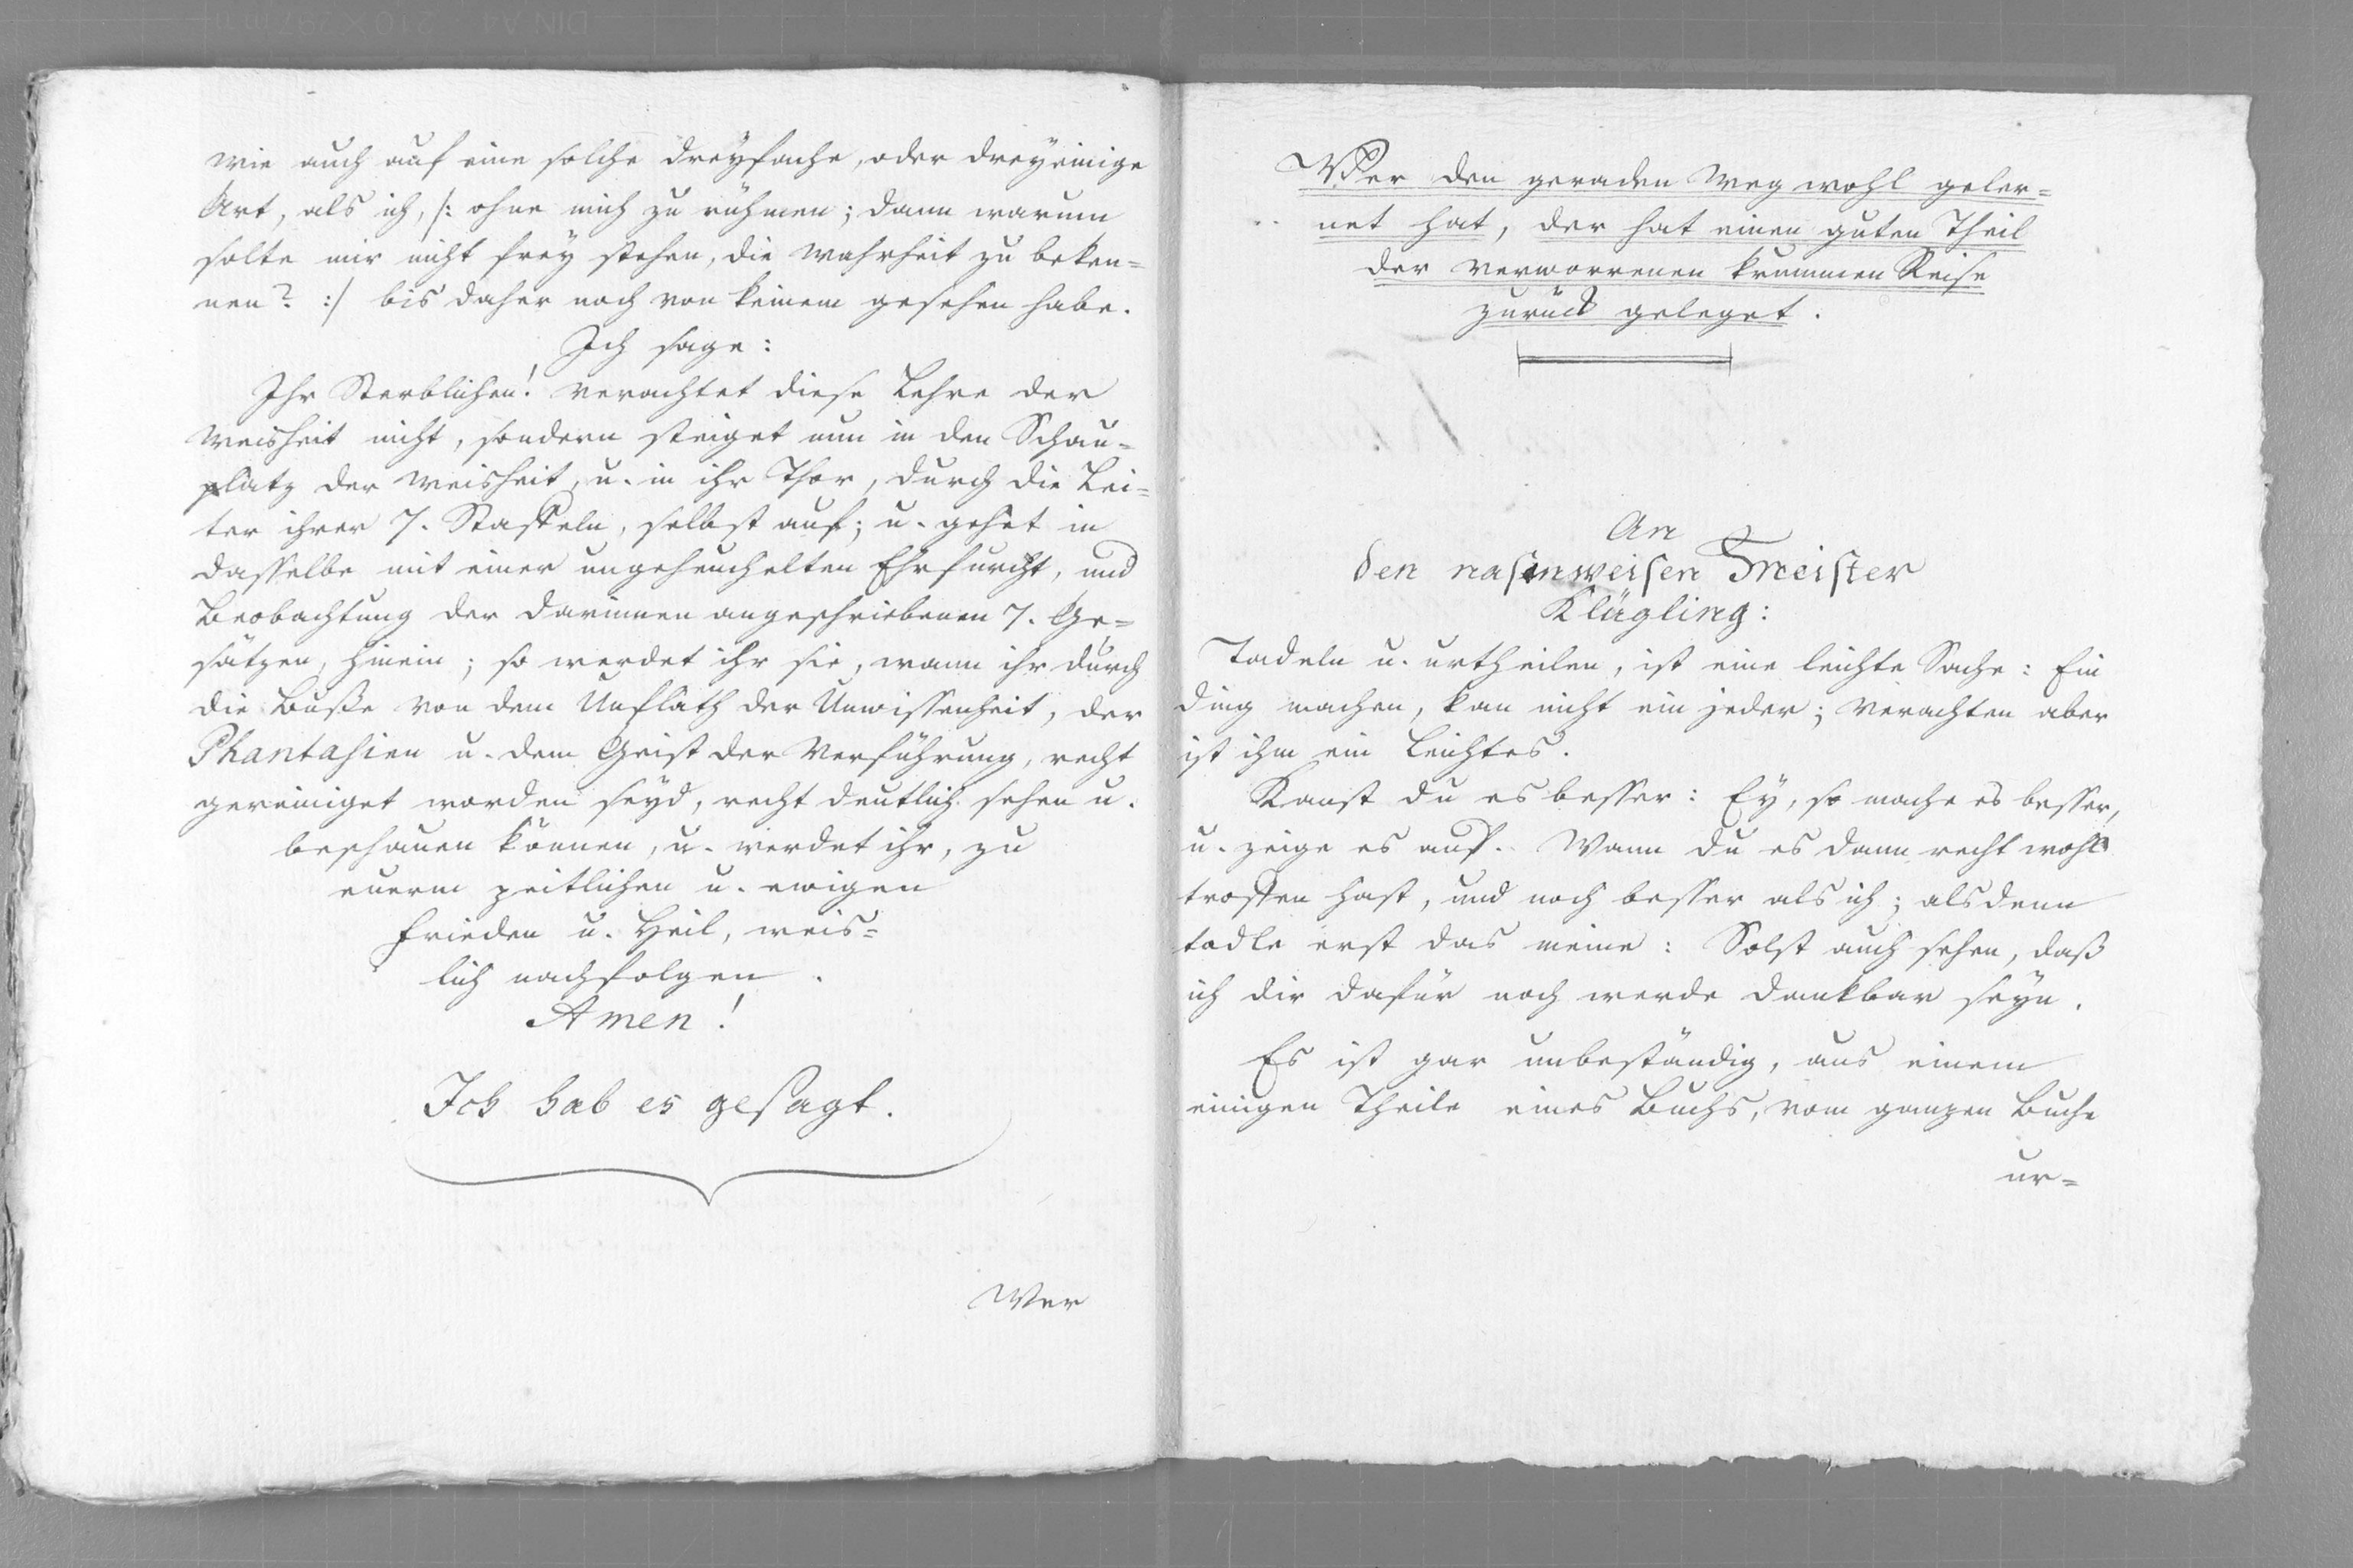 wie auch auf eine solche dreyfache, oder dreyeinige
Art, als ich, /: ohne mich zu rühmen; dann warum
solte mir nicht frey stehen, die Wahrheit zu beken=
nen? :/ bis daher noch von keinem gesehen habe.
Ich sage:
Ihr Sterblichen! verachtet diese Lehre der
Weisheit nicht, sondern steiget nun in den Schau=
platz der Weisheit, u. in ihr Thor, durch die Lei=
ter ihrer 7. Staffeln, selbst auf; u. gehet in
dasselbe mit einer ungeheuchelten Ehrfurcht, und
Beobachtung der darinnen angeschriebenen 7. Ge=
sätzen, hinein; so werdet ihr sie, wann ihr durch
die Buße von dem Unflath der Unwissenheit, der
Phantasien u. dem Geist der Verführung, recht
gereiniget worden seyd, recht deutlich sehen u.
beschauen können, u. werdet ihr, zu
euerm zeitlichen u. ewigen
Frieden u. Heil, weis=
lich nachfolgen.
Amen!
Ich hab es gesagt.
Wer
Wer den geraden Weg wohl geler=
net hat, der hat einen guten Theil
der verworrenen krummen Reise
zurück geleget.
An
den nasenweisen Meister
Klügling:
Tadeln u. urtheilen, ist eine leichte Sache: Ein
Ding machen, kan nicht ein jeder; verachten aber
ist ihm ein Leichtes.
Kanst du es besser: Ey, so mache es besser,
u. zeige es auf. Wann du es dann recht wohl
troffen hast, und noch besser als ich; alsdenn
tadle erst das meine: Solst auch sehen, daß
ich dir dafür noch werde dankbar seyn.
Es ist gar unbeständig, aus einem
einigen Theile eines Buchs, vom ganzen Buche
ur=